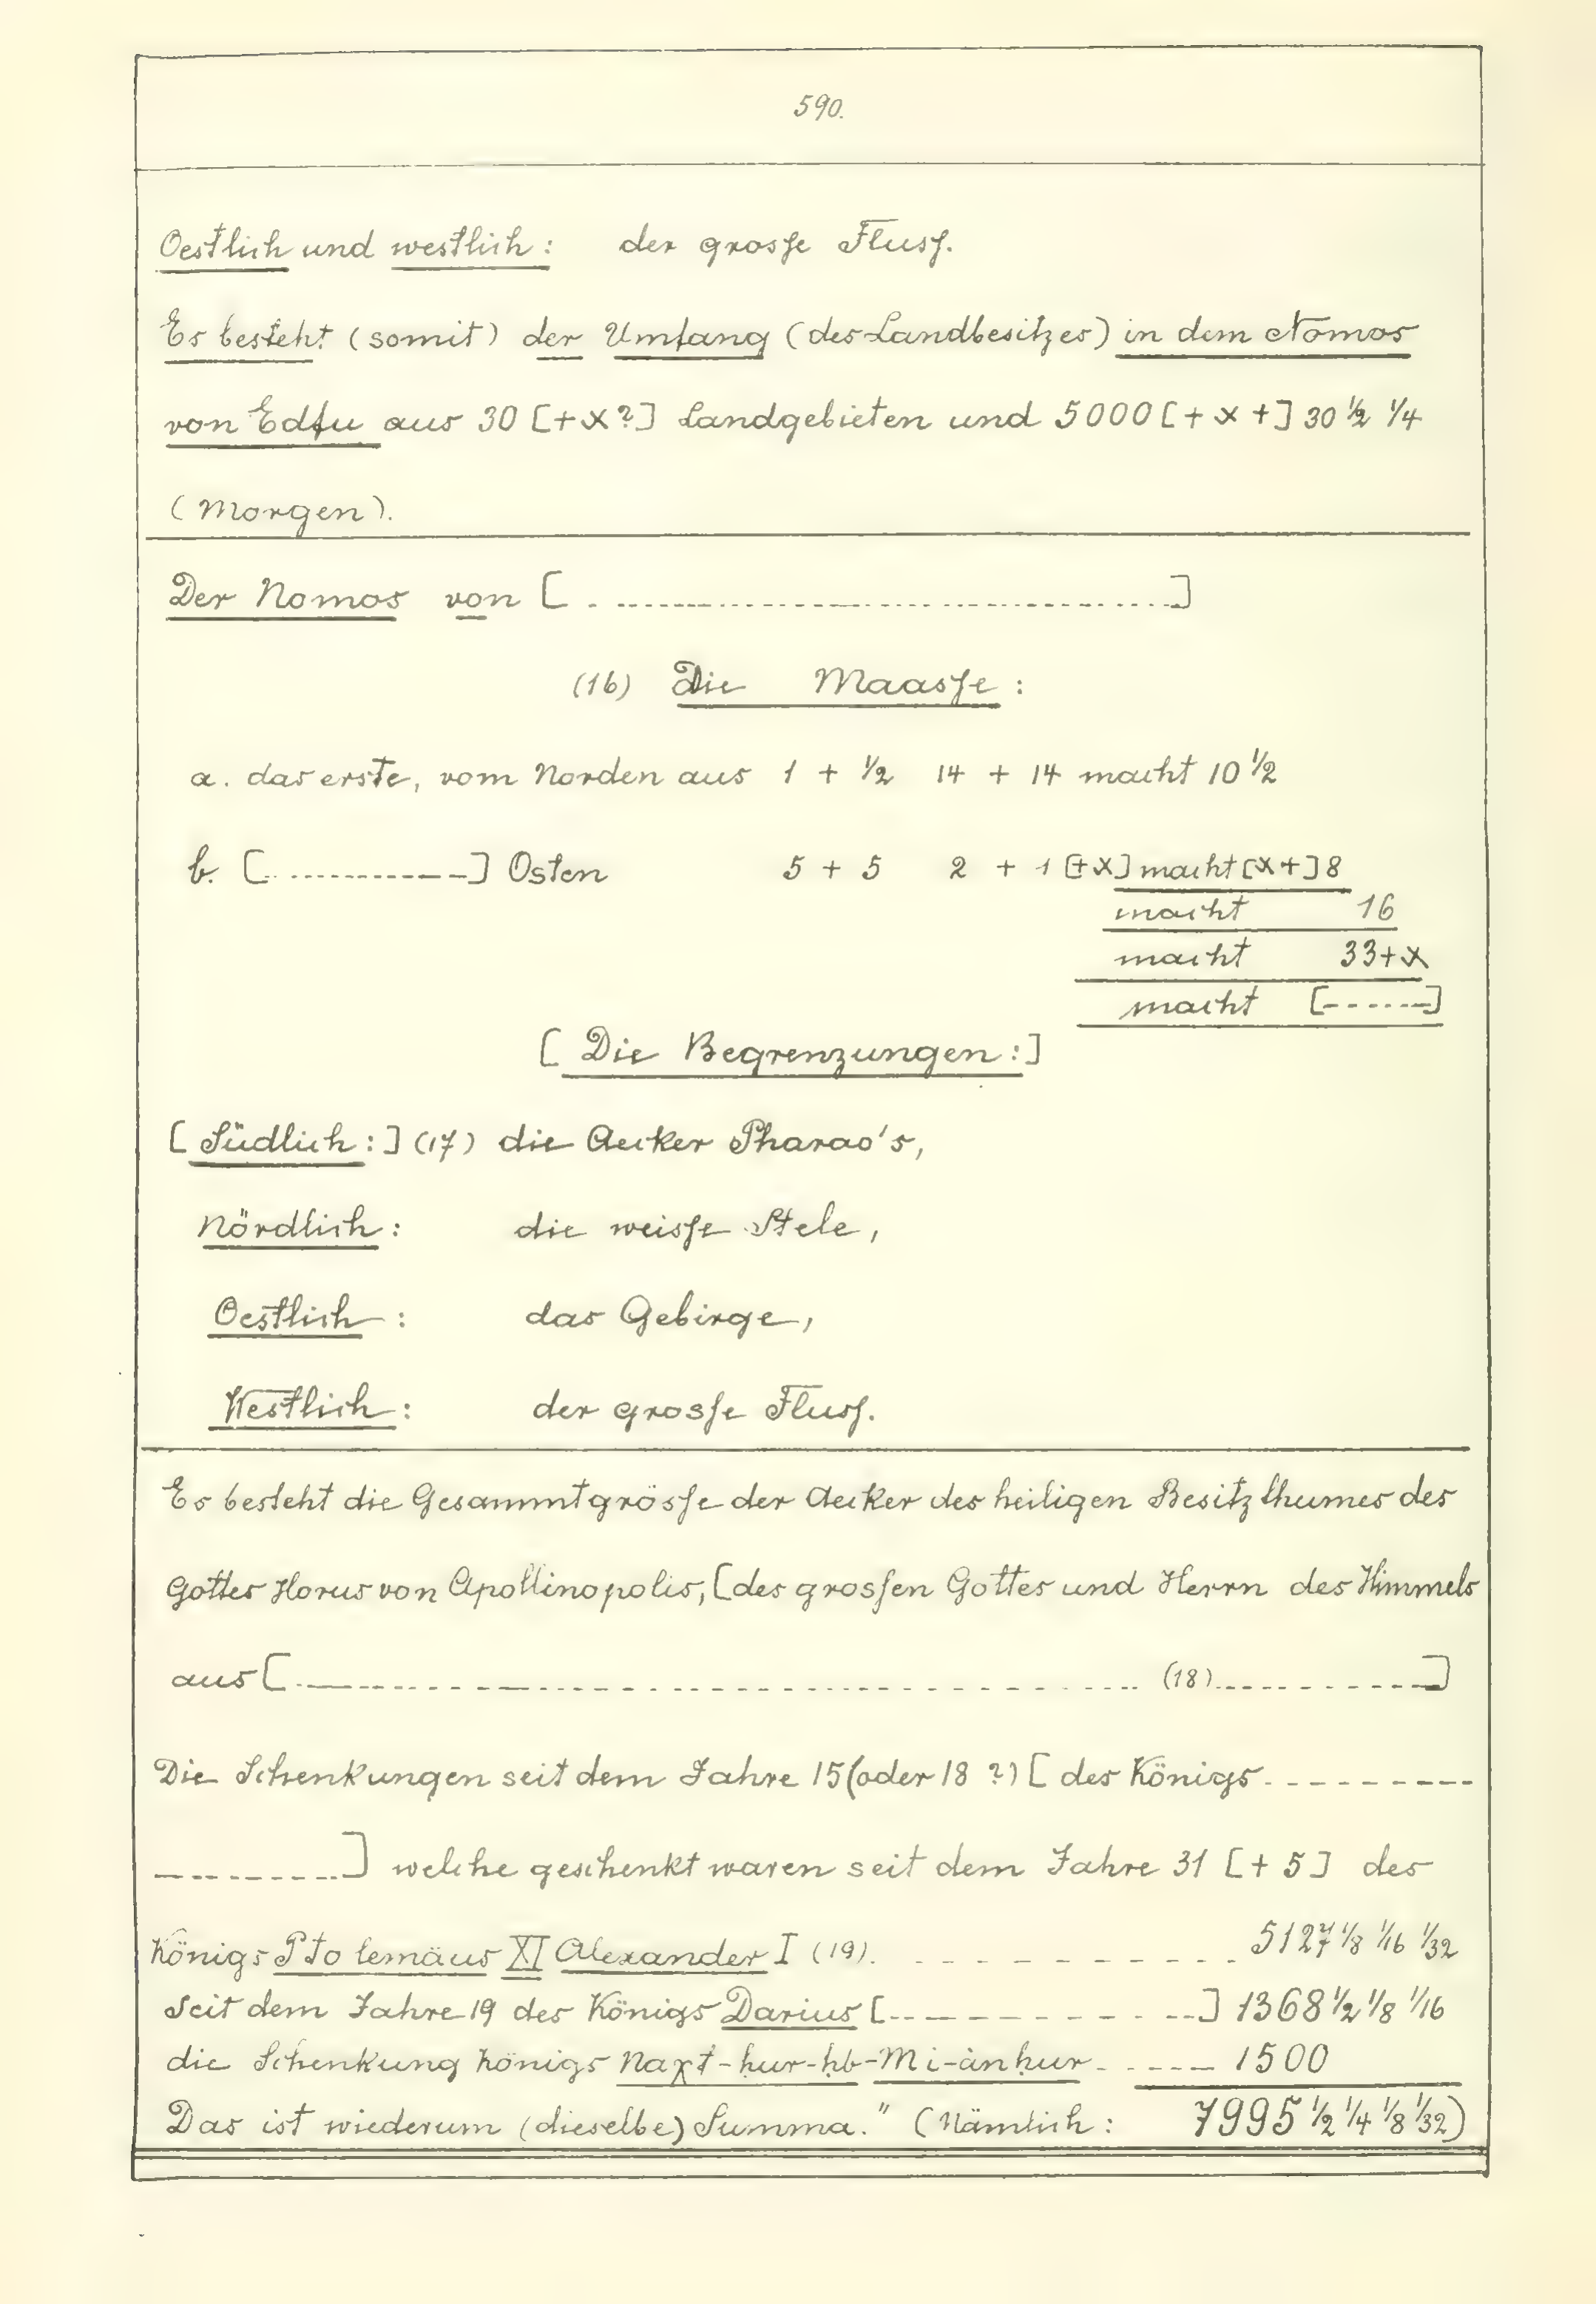 590.
Oestlich und westlich: der grosse Fluss.
Es besteht (somit) der Umfang (des Landbesitzes) in dem Nomos
von Edfu aus 30 [+x?] Landgebieten und 5000 [+ x +] 30 ½ ¼
(Morgen).
Der Nomos von [. .............................................]
(16) Die Maasse:
a. das erste, vom Norden aus 1 + ½ 14 + 14 macht 10 ½
b. [...............] Osten 5 + 5 2 + 1 [+x] macht [x+] 8
macht 16
macht 33+x
macht [-------]
[Die Begrenzungen:]
[Südlich:] (17) die Aecker Pharao's,
Nördlich: die weisse Stele,
Oestlich: das Gebirge,
Westlich: der grosse Fluss.
Es besteht die Gesammtgrösse der Aecker des heiligen Besitzthumes des
Gottes Horus von Apollinopolis, [des grossen Gottes und Herrn des Himmels
aus [............................................ (18) ............]
Die Schenkungen seit dem Jahre 15 (oder 18 ?) [des Königs ----------
----------] welche geschenkt waren seit dem Jahre 31 [+ 5] des
Königs Ptolemäus XI Alexander I (19). - - - - - - - - - - 5127 ⅛ 1/16 1/32
Seit dem Jahre 19 des Königs Darius [-------------] 1368 ½ ⅛ 1/16
die Schenkung Königs Naχt-ḥur-ḥb-Mi-ànḥur ------ 1500
Das ist wiederum (dieselbe) Summa." (Nämlich: 7995 ½ ¼ ⅛ 1/32)